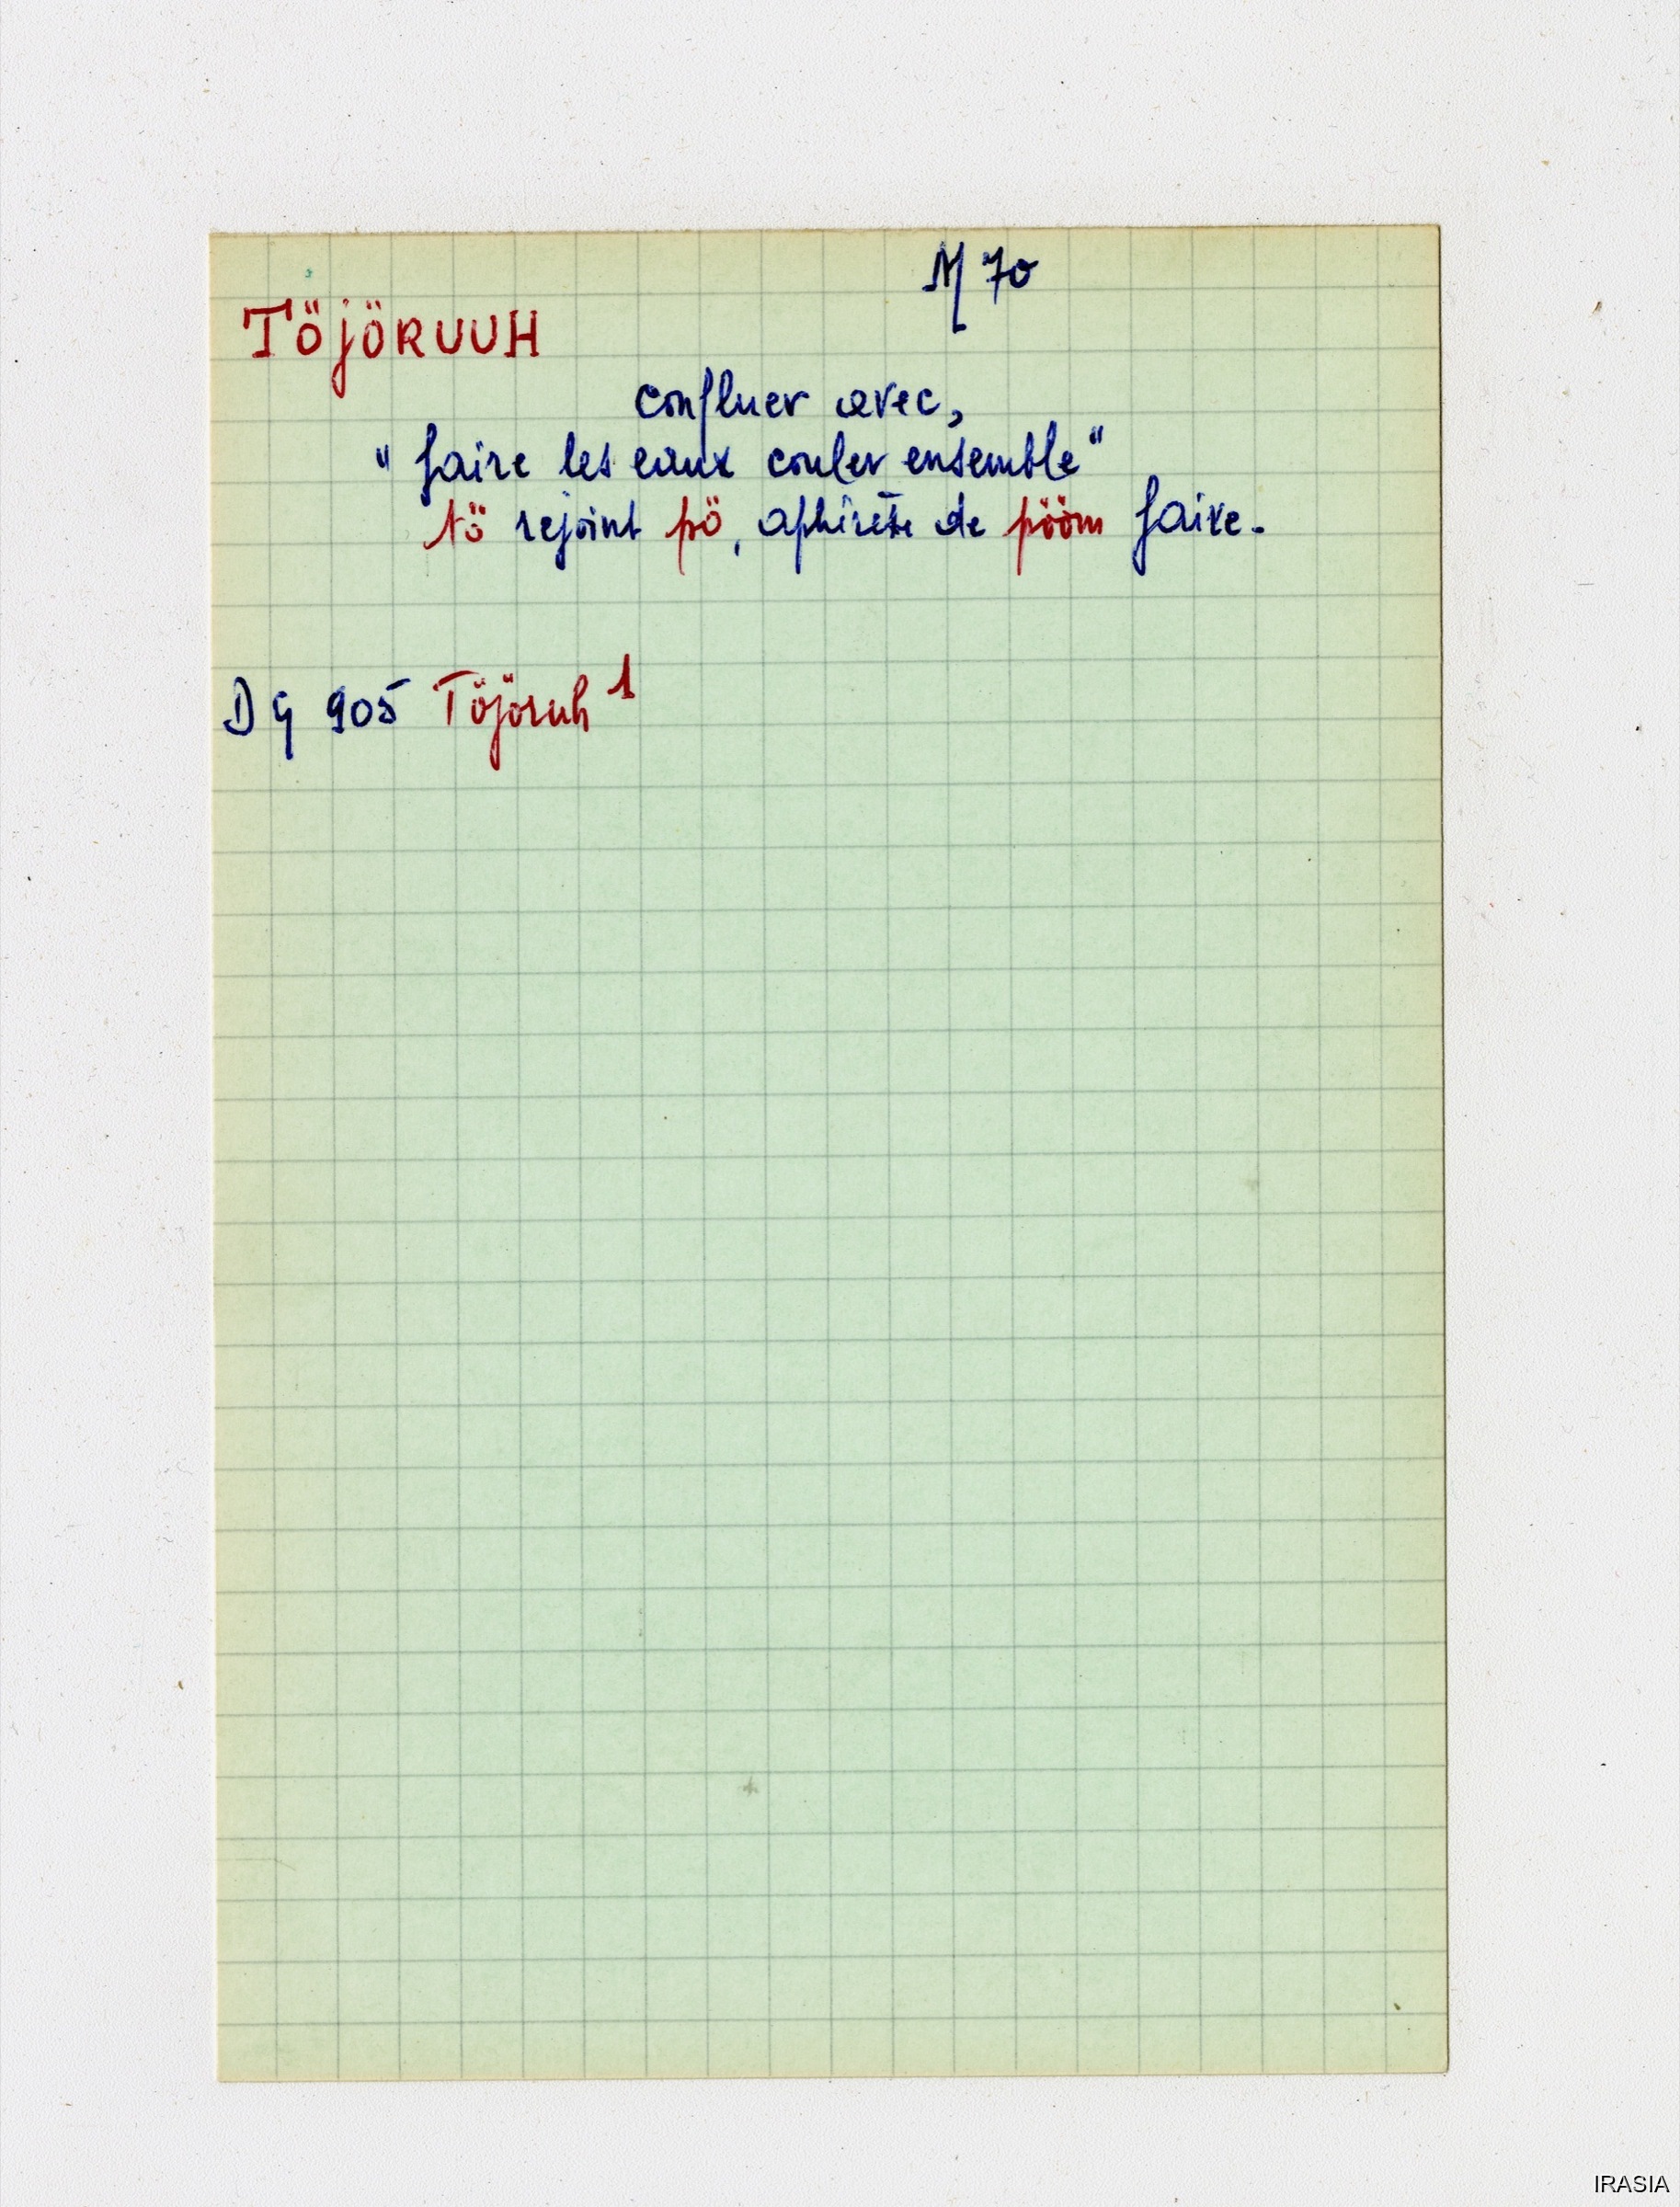 M 70
TÖJÖRUUH
confluer avec,
"faire les eaux couler ensemble"
tö rejoint pö, aphérèse de pööm faire.
DG 905 Töjöruh 1
IRASIA